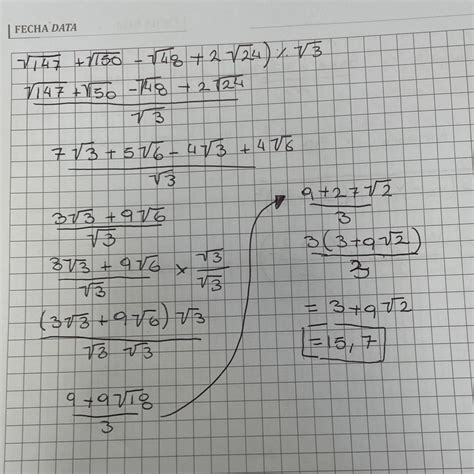 FECHA DATA
√147 + √150 - √48 + 2√24) ⁒ √3
√147 + √150 - √48 + 2√24
√3
7√3 + 5√6 - 4√3 + 4√6
√3
3√3 + 9√6
√3
3√3 + 9√6 × √3
√3 √3
(3√3 + 9√6) √3
√3 √3
9 + 9√18
3
9 + 27√2
3
3(3 + 9√2)
3
= 3 + 9√2
= 15,7